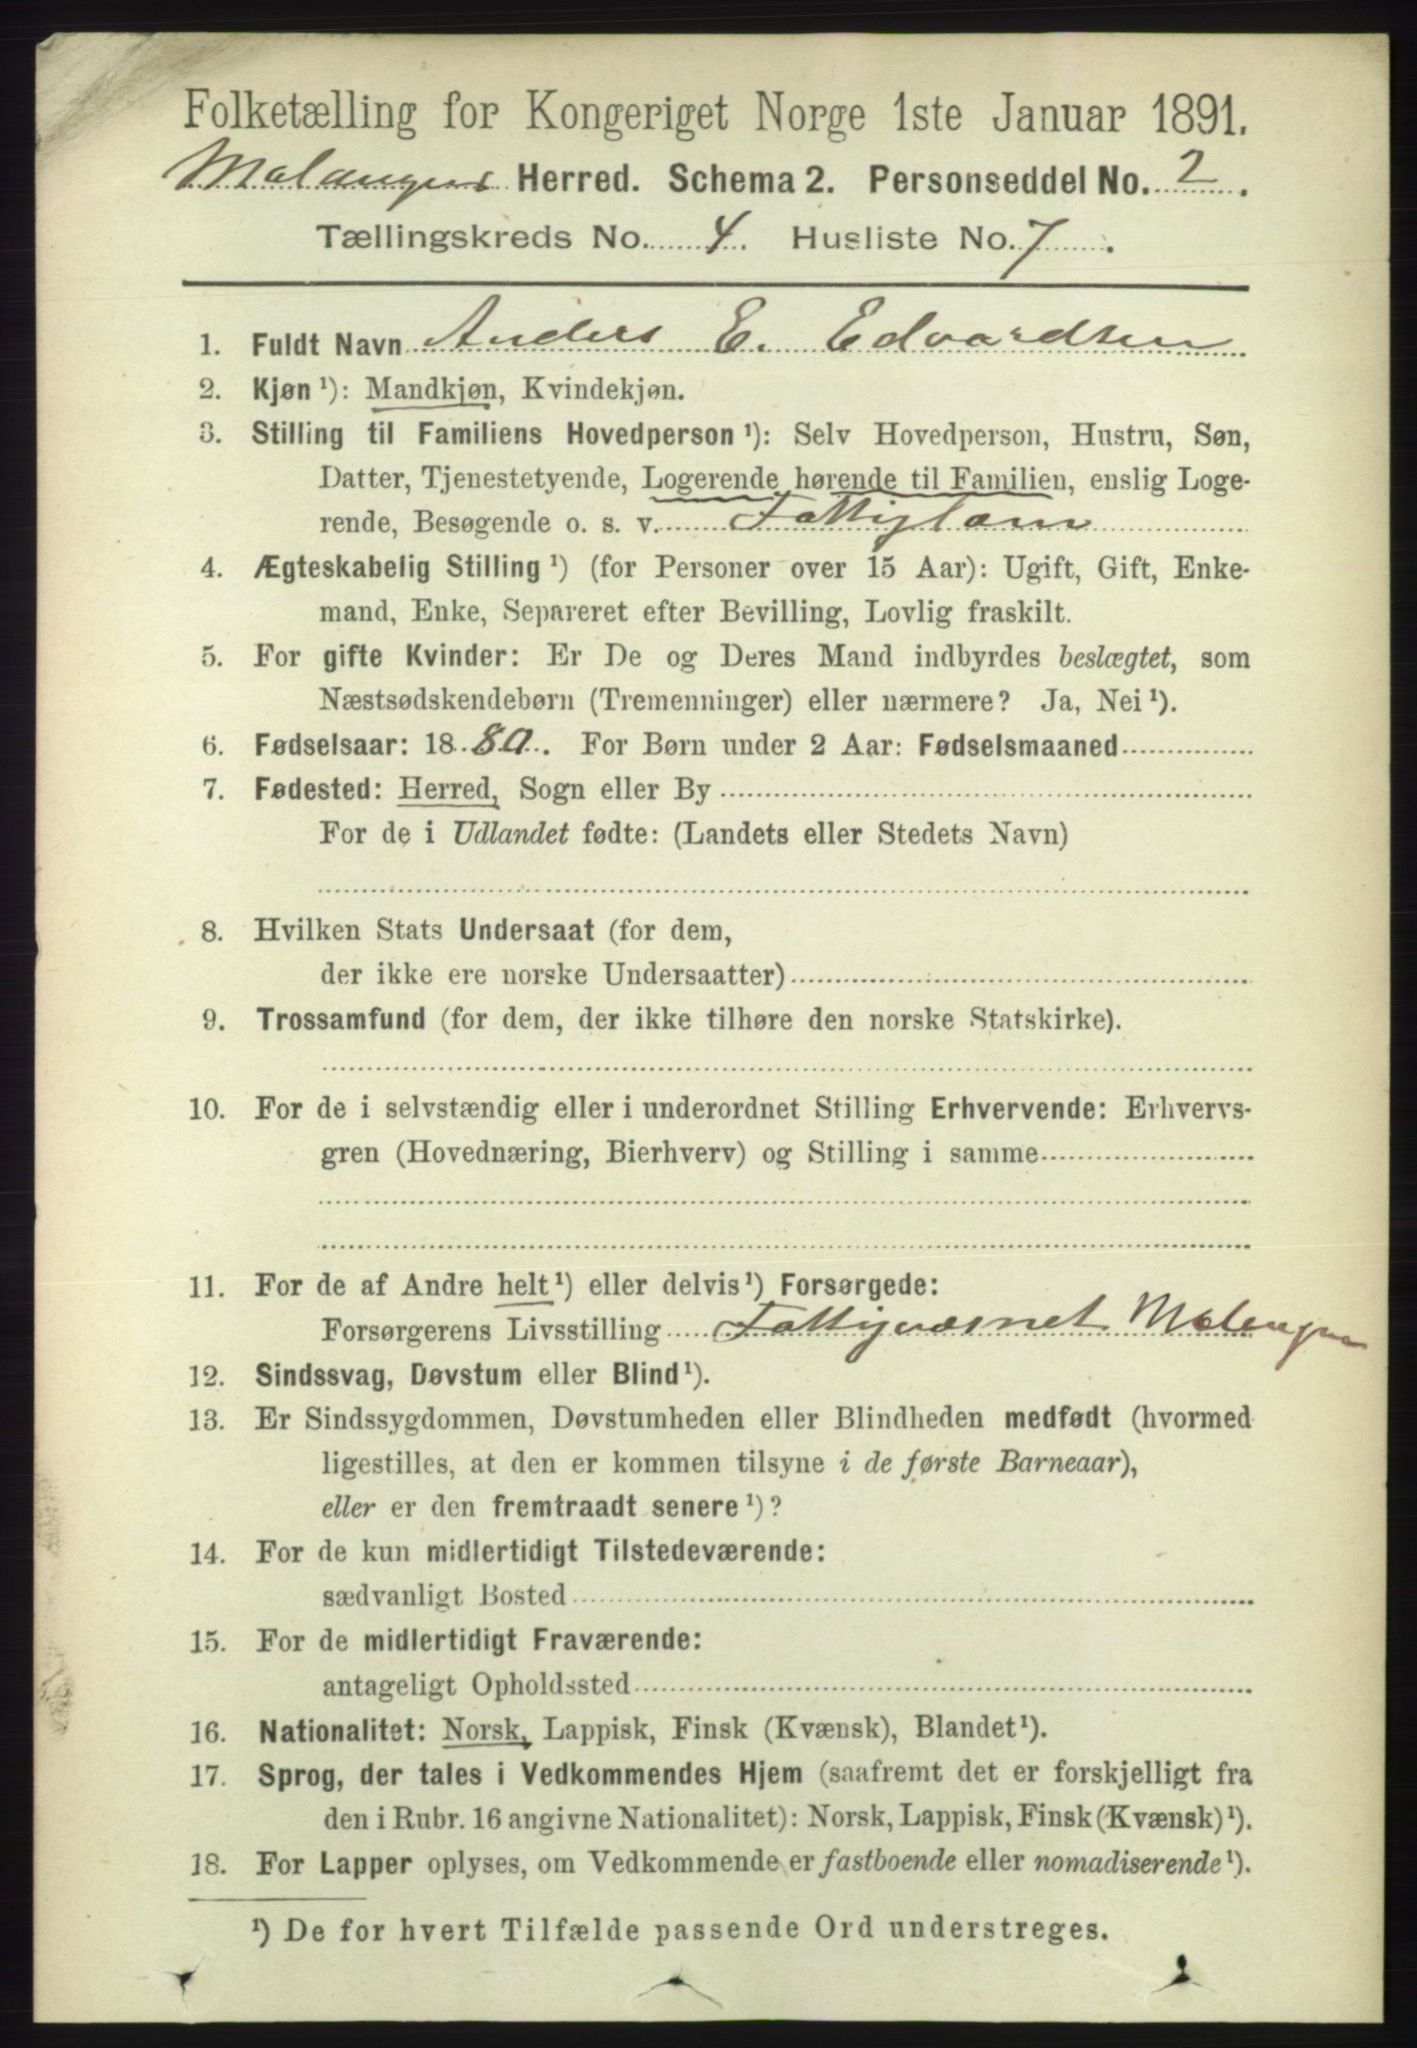 Folketælling for Kongeriget Norge 1ste Januar 1891.
Malangens Herred. Schema 2. Personseddel No. 2.
Tællingskreds No. 4. Husliste No. 7.
1. Fuldt Navn Anders E. Edvardsen
2. Kjøn ¹): Mandkjøn, Kvindekjøn.
3. Stilling til Familiens Hovedperson ¹): Selv Hovedperson, Hustru, Søn,
Datter, Tjenestetyende, Logerende hørende til Familien, enslig Loge-
rende, Besøgende o. s. v. Fattiglem
4. Ægteskabelig Stilling ¹) (for Personer over 15 Aar): Ugift, Gift, Enke-
mand, Enke, Separeret efter Bevilling, Lovlig fraskilt.
5. For gifte Kvinder: Er De og Deres Mand indbyrdes beslægtet, som
Næstsødskendebørn (Tremenninger) eller nærmere? Ja, Nei ¹).
6. Fødselsaar: 1880. For Børn under 2 Aar: Fødselsmaaned
7. Fødested: Herred, Sogn eller By
For de i Udlandet fødte: (Landets eller Stedets Navn)
8. Hvilken Stats Undersaat (for dem,
der ikke ere norske Undersaatter)
9. Trossamfund (for dem, der ikke tilhøre den norske Statskirke).
10. For de i selvstændig eller i underordnet Stilling Erhvervende: Erhvervs-
gren (Hovednæring, Bierhverv) og Stilling i samme
11. For de af Andre helt ¹) eller delvis ¹) Forsørgede:
Forsørgerens Livsstilling Fattigvæsnet Malangen
12. Sindssvag, Døvstum eller Blind ¹).
13. Er Sindssygdommen, Døvstumheden eller Blindheden medfødt (hvormed
ligestilles, at den er kommen tilsyne i de første Barneaar),
eller er den fremtraadt senere ¹)?
14. For de kun midlertidigt Tilstedeværende:
sædvanligt Bosted
15. For de midlertidigt Fraværende:
antageligt Opholdssted
16. Nationalitet: Norsk, Lappisk, Finsk (Kvænsk), Blandet ¹).
17. Sprog, der tales i Vedkommendes Hjem (saafremt det er forskjelligt fra
den i Rubr. 16 angivne Nationalitet): Norsk, Lappisk, Finsk (Kvænsk) ¹).
18. For Lapper oplyses, om Vedkommende er fastboende eller nomadiserende ¹).
¹) De for hvert Tilfælde passende Ord understreges.